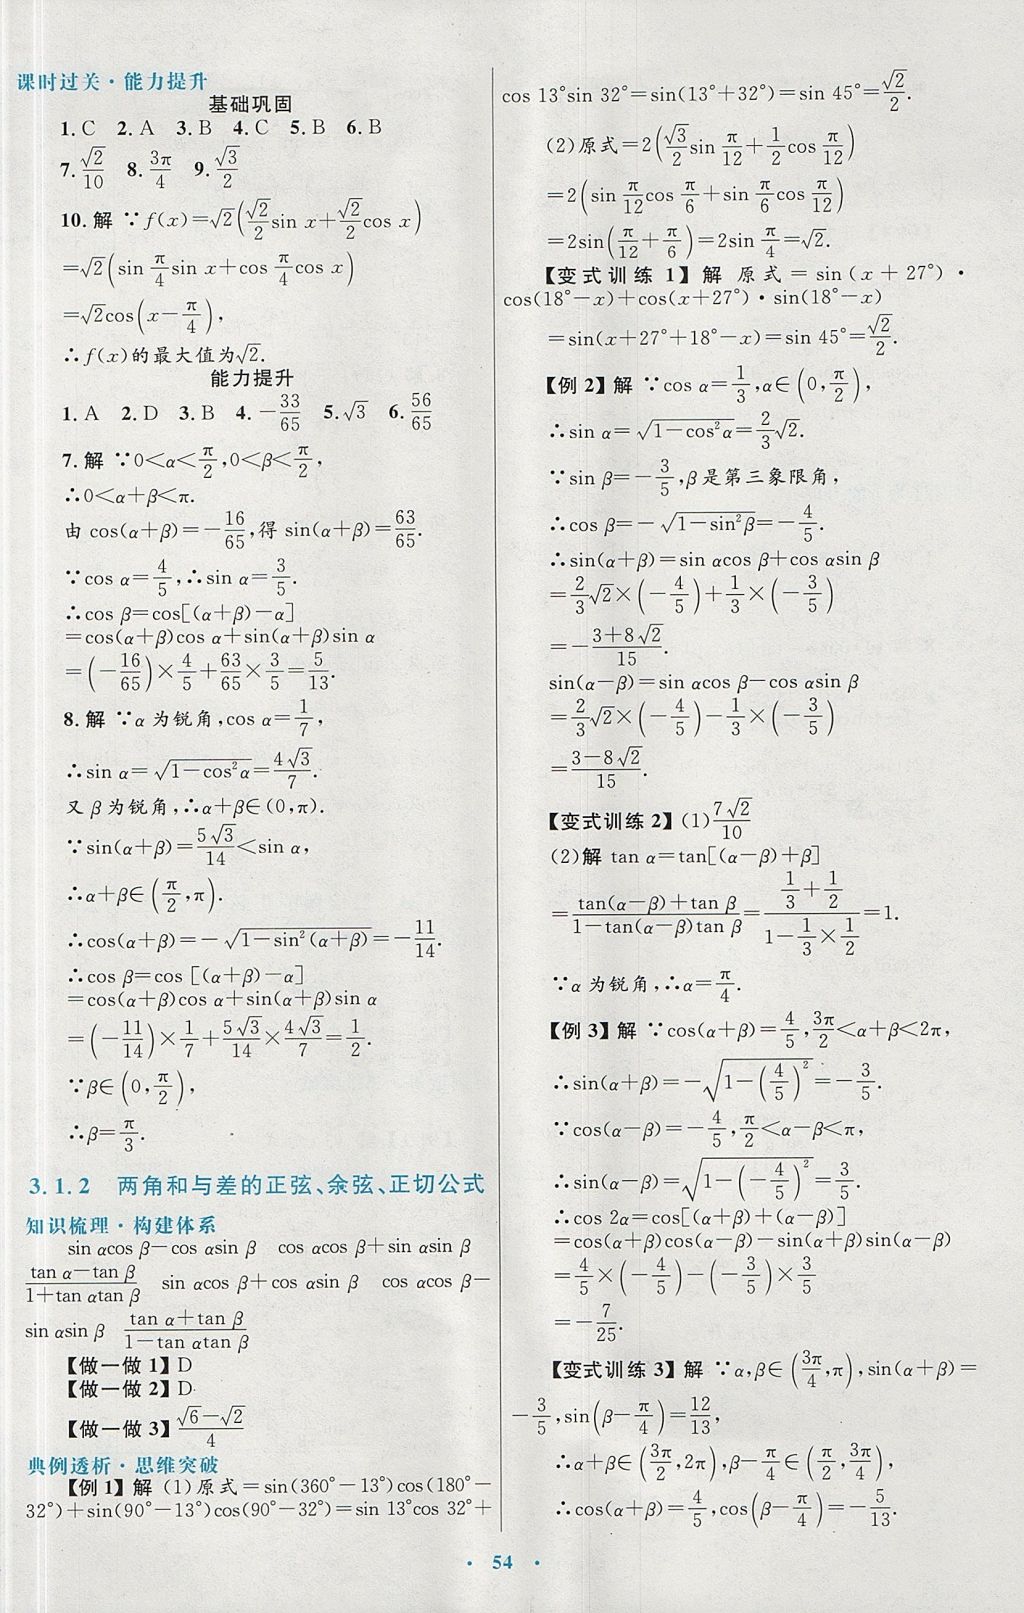 课时过关·能力提升
基础巩固
1. C  2. A  3. B  4. C  5. B  6. B
7. √2/10  8. 3π/4  9. √3/2
10. 解 ∵f(x)=√2(√2/2 sin x+√2/2 cos x)
=√2(sin π/4 sin x+cos π/4 cos x)
=√2cos(x-π/4),
∴f(x)的最大值为√2.
能力提升
1. A  2. D  3. B  4. -33/65  5. √3  6. 56/65
7. 解 ∵0<α<π/2,0<β<π/2,
∴0<α+β<π.
由 cos(α+β)=-16/65,得 sin(α+β)=63/65.
∵cos α=4/5,∴sin α=3/5.
∴cos β=cos[(α+β)-α]
=cos(α+β)cos α+sin(α+β)sin α
=(-16/65)×4/5+63/65×3/5=5/13.
8. 解 ∵α为锐角,cos α=1/7,
∴sin α=√(1-cos²α)=4√3/7.
又β为锐角,∴α+β∈(0,π).
∵sin(α+β)=5√3/14<sin α,
∴α+β∈(π/2,π).
∴cos(α+β)=-√(1-sin²(α+β))=-11/14.
∴cos β=cos [(α+β)-α]
=cos(α+β)cos α+sin(α+β)sin α
=(-11/14)×1/7+5√3/14×4√3/7=1/2.
∵β∈(0,π/2),
∴β=π/3.
3.1.2 两角和与差的正弦、余弦、正切公式
知识梳理·构建体系
sin αcos β-cos αsin β  cos αcos β+sin αsin β
(tan α-tan β)/(1+tan αtan β)  sin αcos β+cos αsin β  cos αcos β-
sin αsin β  (tan α+tan β)/(1-tan αtan β)
【做一做 1】D
【做一做 2】D
【做一做 3】(√6-√2)/4
典例透析·思维突破
【例 1】解 (1)原式=sin(360°-13°)cos(180°-
32°)+sin(90°-13°)cos(90°-32°)=sin 13°cos 32°+
cos 13°sin 32°=sin(13°+32°)=sin 45°=√2/2.
(2)原式=2(√3/2 sin π/12+1/2 cos π/12)
=2(sin π/12 cos π/6+sin π/6 cos π/12)
=2sin(π/12+π/6)=2sin π/4=√2.
【变式训练 1】解 原式=sin(x+27°)·
cos(18°-x)+cos(x+27°)·sin(18°-x)
=sin(x+27°+18°-x)=sin 45°=√2/2.
【例 2】解 ∵cos α=1/3,α∈(0,π/2),
∴sin α=√(1-cos²α)=2/3√2.
∵sin β=-3/5,β是第三象限角,
∴cos β=-√(1-sin²β)=-4/5.
∴sin(α+β)=sin αcos β+cos αsin β
=2/3√2×(-4/5)+1/3×(-3/5)
=-(3+8√2)/15.
sin(α-β)=sin αcos β-cos αsin β
=2/3√2×(-4/5)-1/3×(-3/5)
=(3-8√2)/15.
【变式训练 2】(1)7√2/10
(2)解 tan α=tan[(α-β)+β]
=(tan(α-β)+tan β)/(1-tan(α-β)tan β)=(1/3+1/2)/(1-1/3×1/2)=1.
∵α为锐角,∴α=π/4.
【例 3】解 ∵cos(α+β)=4/5,3π/2<α+β<2π,
∴sin(α+β)=-√(1-(4/5)²)=-3/5.
∵cos(α-β)=-4/5,π/2<α-β<π,
∴sin(α-β)=√(1-(-4/5)²)=3/5.
∴cos 2α=cos[(α+β)+(α-β)]
=cos(α+β)cos(α-β)-sin(α+β)sin(α-β)
=4/5×(-4/5)-(-3/5)×3/5
=-7/25.
【变式训练 3】解 ∵α,β∈(3π/4,π),sin(α+β)=
-3/5,sin(β-π/4)=12/13,
∴α+β∈(3π/2,2π),β-π/4∈(π/2,3π/4).
∴cos(α+β)=4/5,cos(β-π/4)=-5/13.
· 54 ·